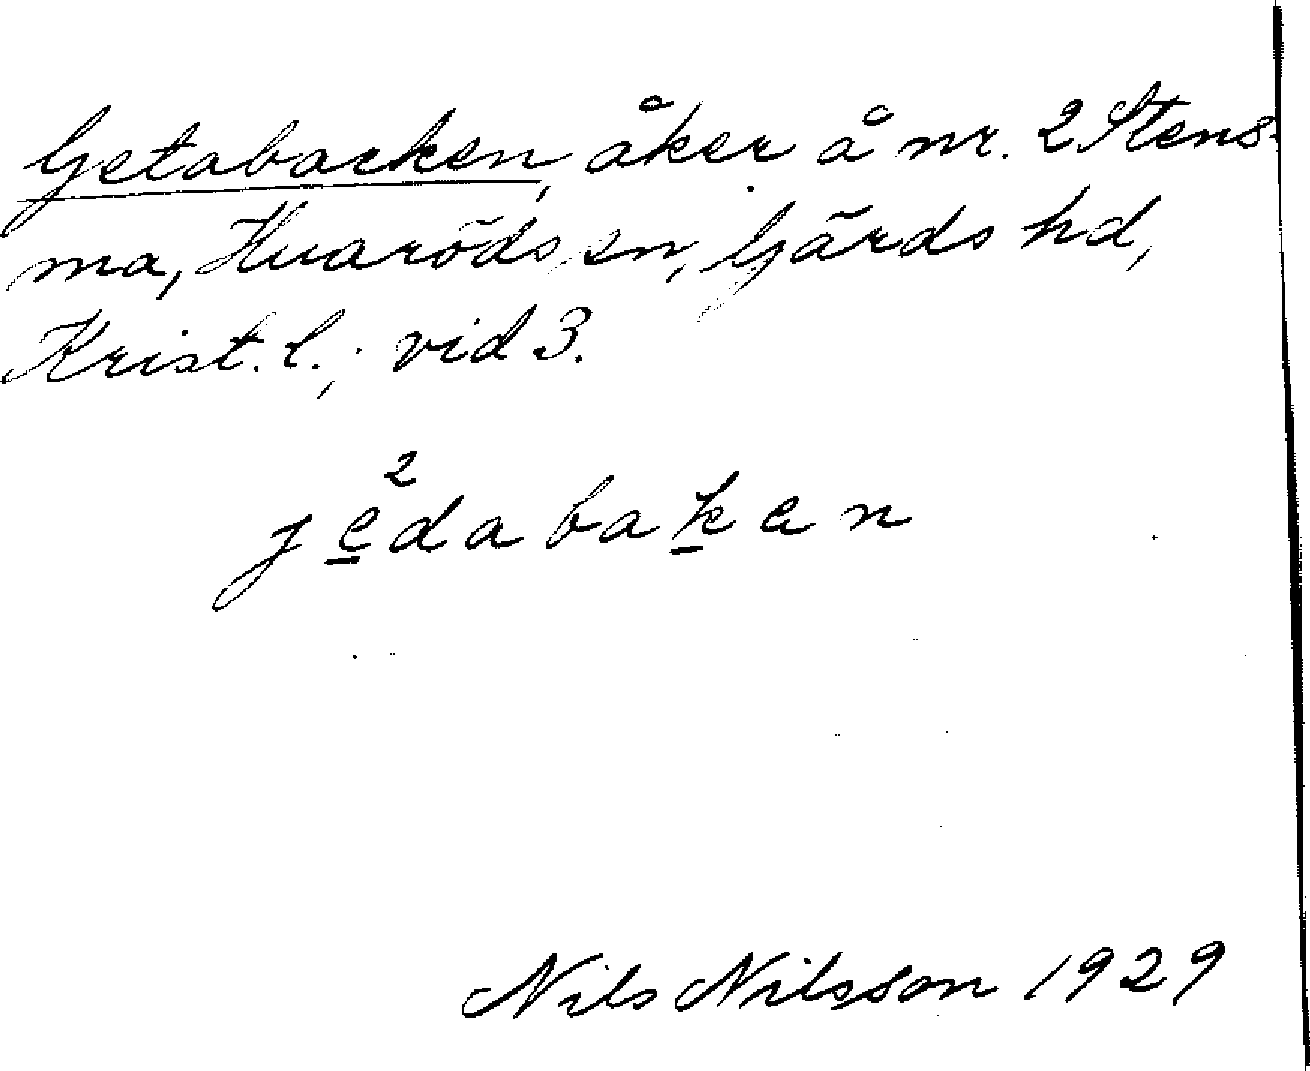 Getabacken, åker å nr. 2 Stens-
ma, Huaröds sn, Gärds hd,
Krist. l.; vid 3.
2
jedabaken
Nils Nilsson 1929